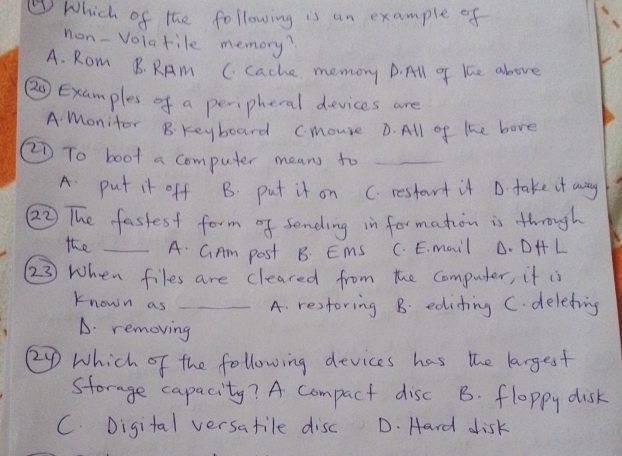 (19) Which of the following is an example of
non-Volatile memory?
A. Rom B. RAM C. Cache memory D. All of the above
(20) Examples of a peripheral devices are
A. Monitor B. Keyboard C. mouse D. All of the bove
(21) To boot a computer means to ____
A. put it off B. put it on C. restart it D. take it away
(22) The fastest form of sending information is through
the ____ A. GAm post B. EMS C. E.mail D. DHL
(23) When files are cleared from the computer, it is
known as ____ A. restoring B. editing C. deleting
D. removing
(24) Which of the following devices has the largest
Storage capacity? A Compact disc B. floppy disk
C. Digital versatile disc D. Hard disk